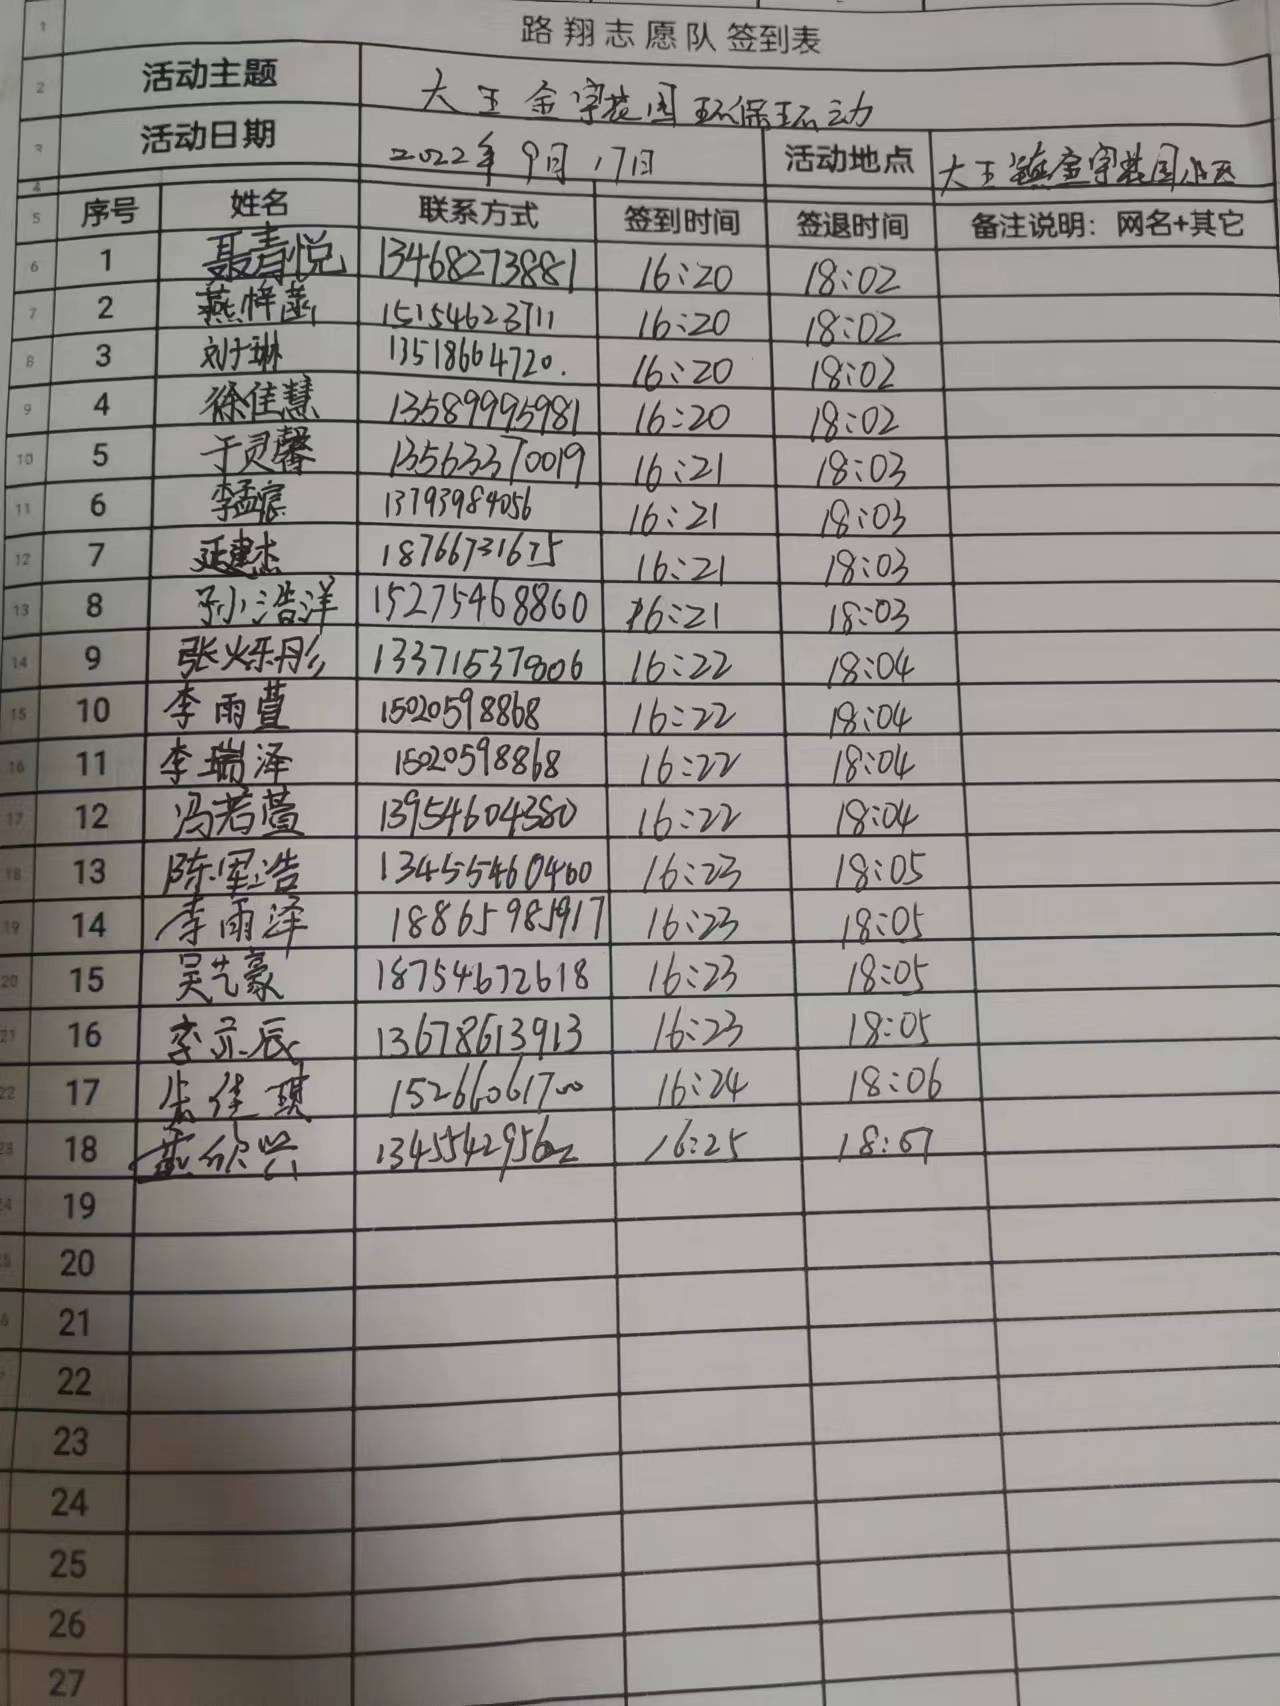 1 路翔志愿队签到表
2 活动主题 大王金宇花园环保活动
3 活动日期 2022年9月17日 活动地点 大王镇金宇花园小区
4
5 序号 姓名 联系方式 签到时间 签退时间 备注说明：网名+其它
6 1 聂青悦 13468273881 16:20 18:02
7 2 燕梓菡 15154623711 16:20 18:02
8 3 刘于琳 13518664720. 16:20 18:02
9 4 徐佳慧 13589995981 16:20 18:02
10 5 于灵馨 13563370019 16:21 18:03
11 6 李孟宸 13793984056 16:21 18:03
12 7 延建杰 18766731675 16:21 18:03
13 8 孙浩洋 15275468860 16:21 18:03
14 9 张烁彤 13371537806 16:22 18:04
15 10 李雨萱 15020598868 16:22 18:04
16 11 李瑞泽 15020598868 16:22 18:04
17 12 冯若萱 13954604380 16:22 18:04
18 13 陈军浩 13455460460 16:23 18:05
19 14 李雨泽 18865985917 16:23 18:05
20 15 吴艺豪 18754672618 16:23 18:05
21 16 李亦辰 13678613913 16:23 18:05
22 17 佳琪 15266061700 16:24 18:06
23 18 欣兴 13455429562 16:25 18:07
24 19
25 20
26 21
22
23
24
25
26
27